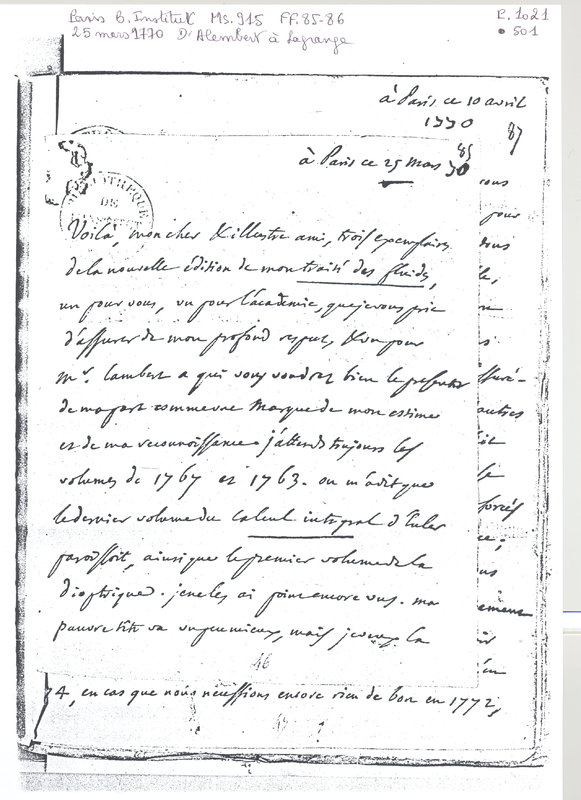 Paris B. Institut Ms. 915 FF. 85-86
25 mars 1770 D'Alembert à Lagrange
P. 1021
• 501
à Paris ce 10 avril
1770
87
85
à Paris ce 25 mars 70
BIBLIOTHEQUE
DE
Voilà, mon cher & illustre ami, trois exemplaires
de la nouvelle édition de mon traité des fluides,
un pour vous, un pour l'academie, que je vous prie
d'assurer de mon profond respect, & un pour
mr. Lambert a qui vous voudrez bien le presenter
de ma part comme une marque de mon estime
et de ma reconnoissance. j'attends toujours les
volumes de 1767 et 1763. on m'a dit que
le dernier volume du calcul integral d'Euler
paroissoit, ainsi que le premier volume de la
dioptrique. je ne les ai point encore vus. ma
pauvre tête va un peu mieux, mais je veux la
vous
pour
vous
le,
ssuré-
autres
forcés
ce;
46
74, en cas que nous n'eussions encore rien de bon en 1772,